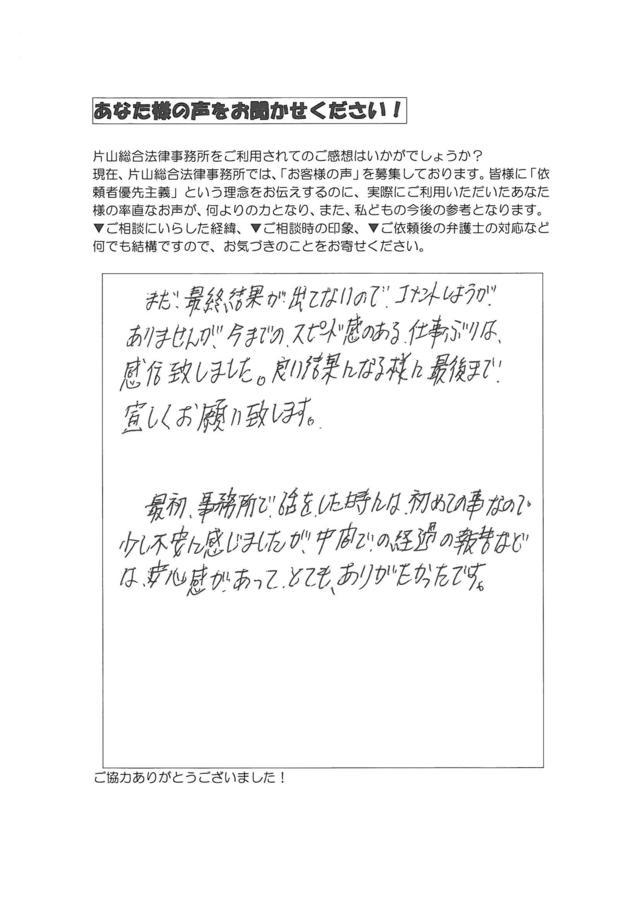 あなた様の声をお聞かせください！
片山総合法律事務所をご利用されてのご感想はいかがでしょうか？
現在、片山総合法律事務所では、「お客様の声」を募集しております。皆様に「依
頼者優先主義」という理念をお伝えするのに、実際にご利用いただいたあなた
様の率直なお声が、何よりの力となり、また、私どもの今後の参考となります。
▼ご相談にいらした経緯、▼ご相談時の印象、▼ご依頼後の弁護士の対応など
何でも結構ですので、お気づきのことをお寄せください。
まだ、最終結果が出てないので、コメントしようが、
ありませんが、今までの、スピード感のある、仕事ぶりは、
感信致しました。良い結果になる様に最後まで、
宜しくお願い致します。
最初、事務所で、話を、した時には、初めての事なので
少し不安に感じましたが、中間での、経過の報告など
は、安心感が、あって、とても、ありがたかったです。
ご協力ありがとうございました！